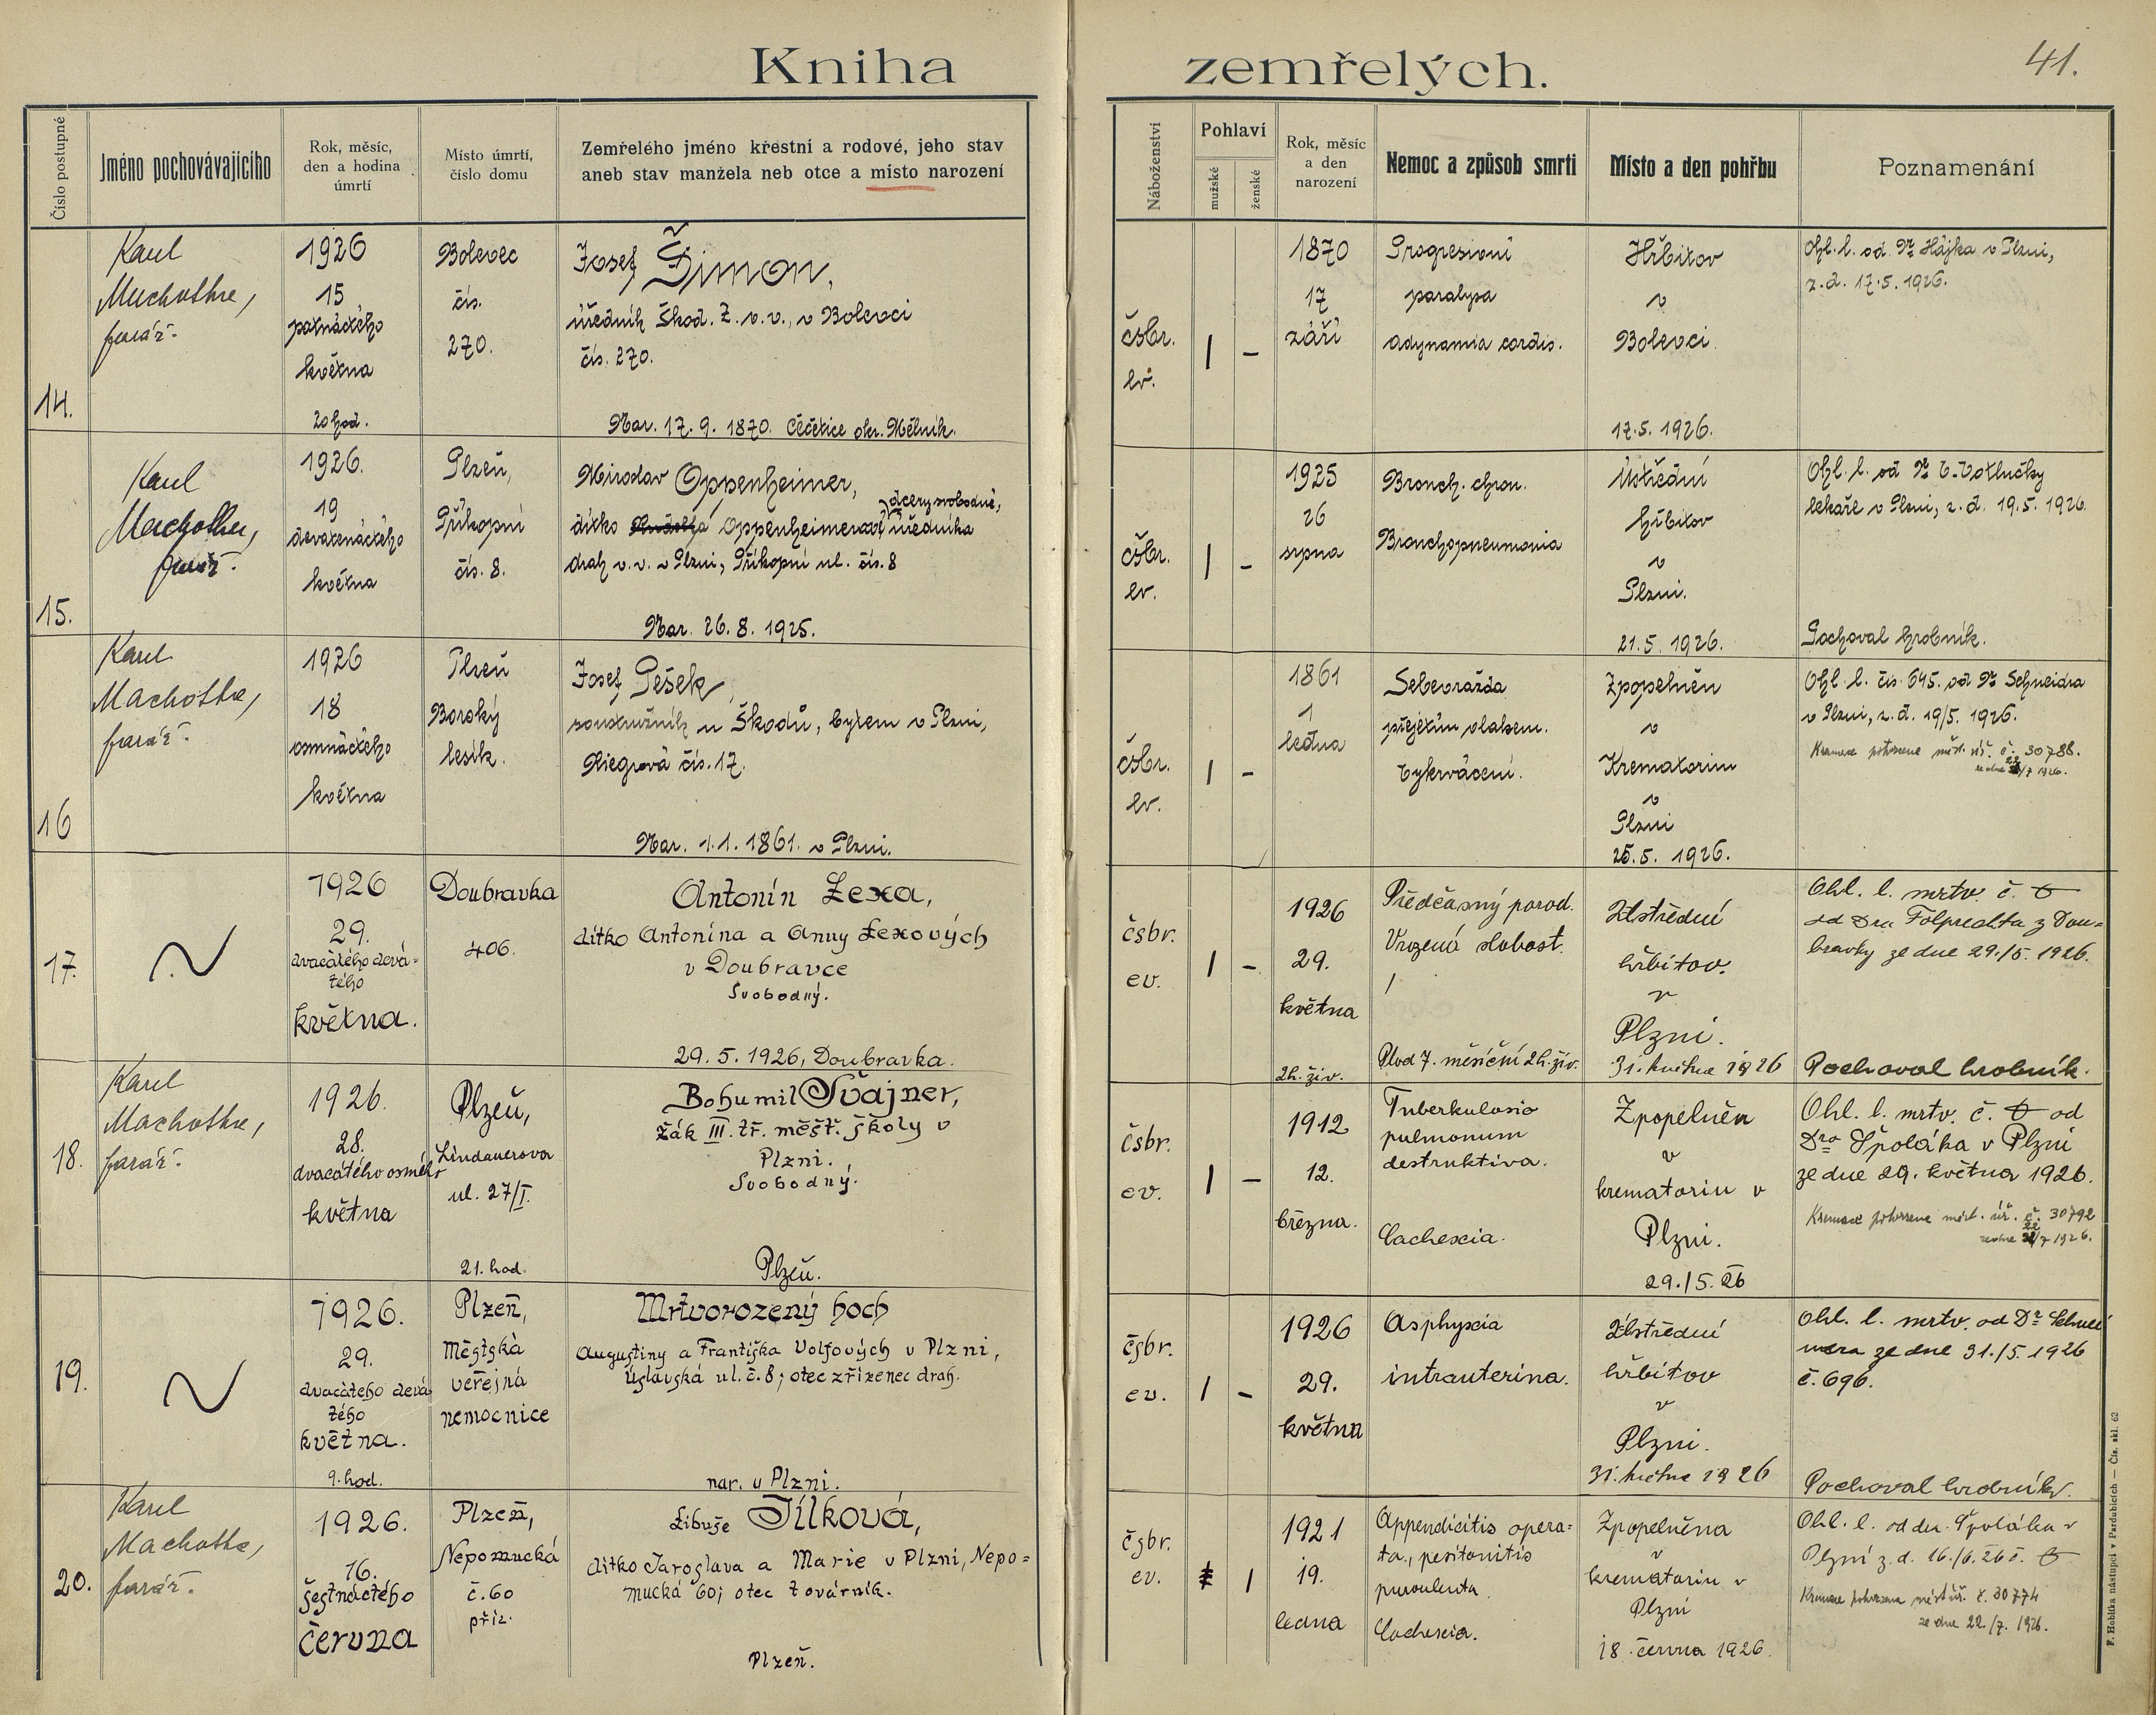 Kniha zemřelých.
41.
Číslo postupné
Jméno pochovávajícího
Rok, měsíc,
den a hodina
úmrtí
Místo úmrtí,
číslo domu
Zemřelého jméno křestní a rodové, jeho stav
aneb stav manžela neb otce a místo narození
Náboženství
Pohlaví
mužské
ženské
Rok, měsíc
a den
narození
Nemoc a způsob smrti
Místo a den pohřbu
Poznamenání
14.
Karel
Machotka,
farář.
1926
15
patnáctého
května
20 hod.
Bolevec
čís.
270.
Josef Šimon,
úředník Škod. Z. v. v., v Bolevci
čís. 270.
Nar. 17. 9. 1870. Čečelice okr. Mělník.
čsbr.
ev.
1 -
1870
17
září
Progresivní
paralysa
adynamia cordis.
Hřbitov
v
Bolevci
17. 5. 1926.
Ohl. l. od Dr Hájka v Plzni,
z. d. 17. 5. 1926.
15.
Karel
Machotka,
farář.
1926.
19
devatenáctého
května
Plzeň,
Příkopní
čís. 8.
Miroslav Oppenheimer,
dcery svobodné,
dítko Oppenheimerové úředníka
drah v. v. v Plzni, Příkopní ul. čís. 8
Nar. 26. 8. 1925.
čsbr.
ev.
1 -
1925
26
srpna
Bronch. chron.
Bronchopneumonia
Ústřední
hřbitov
v
Plzni.
21. 5. 1926.
Ohl. l. od Dr
lékaře v Plzni, z. d. 19. 5. 1926.
Pochoval hrobník.
16
Karel
Machotka,
farář.
1926
18
osmnáctého
května
Plzeň
Borský
lesík.
Josef Pešek,
soustružník u Škodů, bytem v Plzni,
Riegrova čís. 17.
Nar. 1. 1. 1861. v Plzni.
čsbr.
ev.
1 -
1861
1
ledna
Sebevražda
přejetím vlakem.
Vykrvácení.
Zpopelněn
v
Krematoriu
v
Plzni
25. 5. 1926.
Ohl. l. čís. 645. od Dr Schneidra
v Plzni, z. d. 19/5. 1926.
Kremace potvrzena měst. úř. č. 30788.
ze dne 22/7 1926.
17.
1926
29.
dvacátého devá-
tého
května.
Doubravka
406.
Antonín Lexa,
dítko Antonína a Anny Lexových
v Doubravce
Svobodný.
29. 5. 1926, Doubravka.
čsbr.
ev.
1 -
1926
29.
května
2h. živ.
Předčasný porod.
Vrozená slabost.
Plod 7. měsíční 2h. živ.
Ústřední
hřbitov.
v
Plzni.
31. května 1926
Ohl. l. mrtv. č.
od Dra Folprechta z Dou-
bravky ze dne 29./5. 1926.
Pochoval hrobník.
18.
Karel
Machotka,
farář.
1926.
28.
dvacátého osmého
května
Plzeň,
Lindauerova
ul. 27/I.
21. hod.
Bohumil Švajner,
žák III. tř. měšť. školy v
Plzni.
Svobodný.
Plzeň.
čsbr.
ev.
1 -
1912
12.
března.
Tuberkulosio
pulmonum
destruktiva.
Cachexia.
Zpopelněn
v
krematoriu v
Plzni.
29./5. 26
Ohl. l. mrtv. č. od
Dra Špoláka v Plzni
ze dne 29. května 1926.
Kremace potvrzena měst. úř. č. 30792
ze dne 22/7 1926.
19.
1926.
29.
dvacátého devá
tého
května.
9. hod.
Plzeň,
Městská
veřejná
nemocnice
Mrtvorozený hoch
Augustiny a Františka Volfových v Plzni,
Úslavská ul. č. 8; otec zřízenec drah.
nar. v Plzni.
čsbr.
ev.
1 -
1926
29.
května
Asphyxia
intrauterina.
Ústřední
hřbitov
v
Plzni.
31. května 1926
Ohl. l. mrtv. od Dr
ze dne 31./5. 1926
č. 696.
Pochoval hrobník.
20.
Karel
Machotka,
farář.
1926.
16.
šestnáctého
června
Plzeň,
Nepomucká
č. 60
příz.
Libuše Jílková,
dítko Jaroslava a Marie v Plzni, Nepo=
mucká 60; otec továrník.
Plzeň.
čsbr.
ev.
1
1921
19.
ledna
Appendicitis opera=
ta, peritonitis
purulenta
Cachexia.
Zpopelněna
v
krematoriu v
Plzni
18. června 1926.
Ohl. l. od dr. Špoláka v
Plzni z. d. 16./6. 26 č.
Kremace potvrzena měst. úř. č. 30774
ze dne 22./7. 1926.
F. Hoblíka nástupci v Pardubicích — Čís. skl. 62